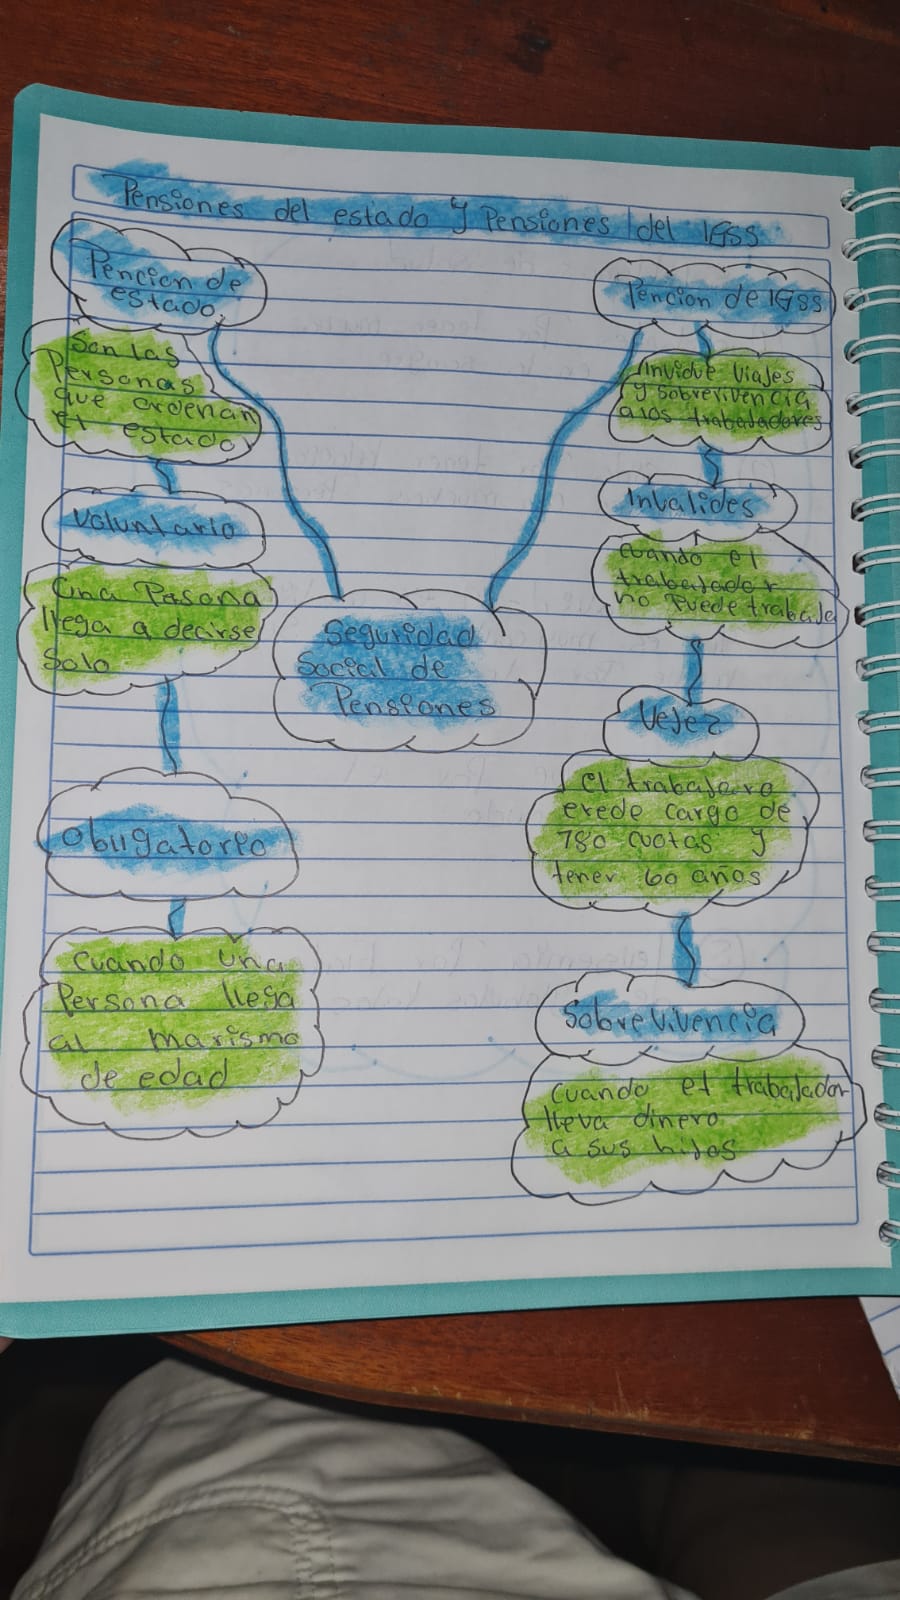 Pensiones del estado y Pensiones del IGSS
Pencion de
estado
Son las
Personas
que ordenan
el estado
Voluntario
Una Pasona
llega a decirse
Solo
Obligatorio
Cuando una
Persona llega
al marismo
de edad
Seguridad
Social de
Pensiones
Pencion de IGSS
Invidve Viajes
y sobrevivencia
a los trabajadores
Invalides
cuando el
trabajador
no puede trabaja
Vejez
el trabajaro
erede cargo de
780 cuotas y
tener 60 años
Sobrevivencia
cuando el trabajador
lleva dinero
a sus hijos